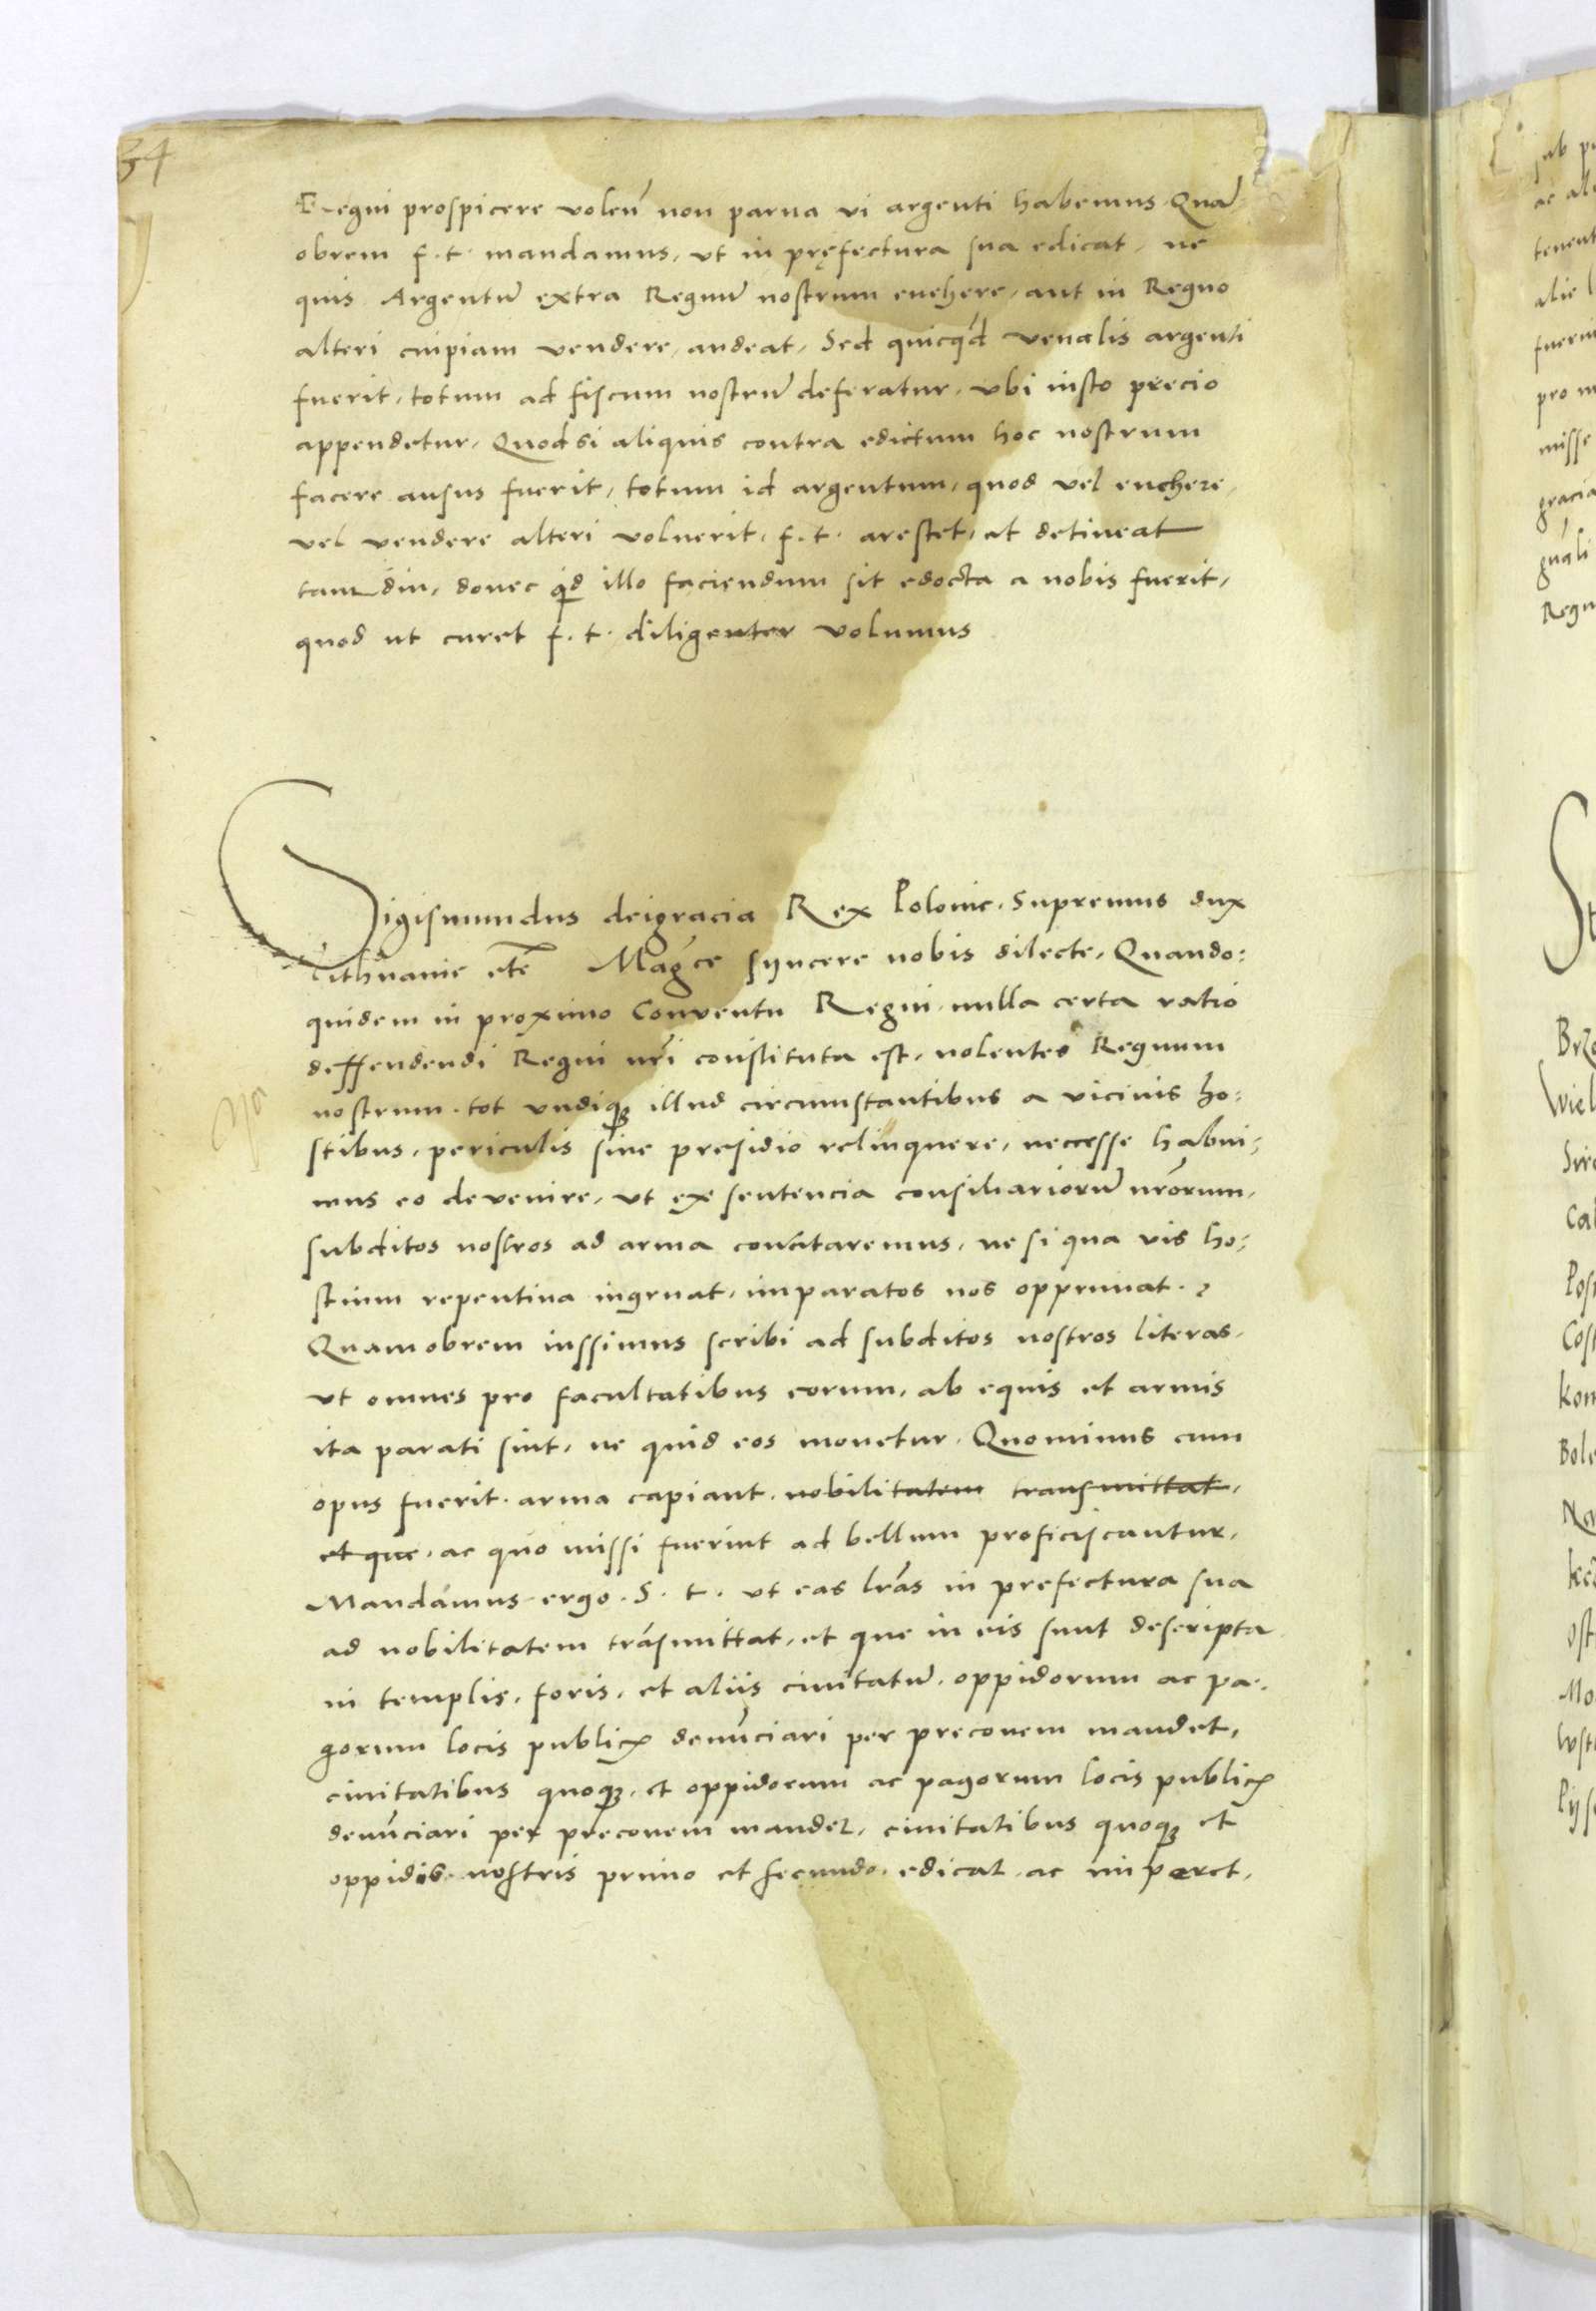 34
Regni prospicere volen̄ non parua vi argenti habemus. Quā
obrem f. t. mandamus, vt in pręfectura sua edicat, ne
quis Argentū extra Regnū nostrum euehere, aut in Regno
alteri cuipiam vendere audeat, Sed quicqͥd venalis argenti
fuerit, totum ad fiscum nostrū deferatur, vbi iusto precio
appendetur, Quod si aliquis contra edictum hoc nostrum
facere ausus fuerit, totum id argentum, quod vel euehere,
vel vendere alteri voluerit, f. t. arestet, et detineat
tam diu, donec qͥd illo faciendum sit edocta a nobis fuerit,
quod ut curet f. t. diligenter volumus
Sigismundus dei gracia Rex Polonie. Supremus dux
Lithuanie etc̄ Mag̃ce syncere nobis dilecte, Quando:
quidem in proximo Conventu Regni nulla certa ratio
deffendendi Regni nr̄i constituta est, nolentes Regnum
nostrum tot vndiqꝫ illud circumstantibus a vicinis ho:
stibus, periculis sine presidio relinquere, neccesse habui:
mus eo devenire, vt ex sentencia consiliariorū nr̄orum,
subditos nostros ad arma concitaremus, ne si qua vis ho:
stium repentina ingruat, imparatos nos opprimat.
Quamobrem iussimus scribi ad subditos nostros literas,
vt omnes pro facultatibus eorum, ab equis et armis
ita parati sint, ne quid eos moretur. Quominus cum
opus fuerit arma capiant. nobilitatem transmittat,
et que, ac quo missi fuerint ad bellum proficiscantur,
Mandamus ergo. S. t. vt eas lr̄as in prefectura sua
ad nobilitatem trāsmittat, et que in eis sunt descripta
in templis, foris, et aliis ciuitatū, oppidorum ac pa:
gorum locis publicꝭ denūciari per preconem mandet,
ciuitatibus quoqꝫ, et oppidorum ac pagorum locis publicꝭ
denūciari per preconem mandet, ciuitatibus quoqꝫ et
oppidis nostris primo et secundo edicat ac imperet,